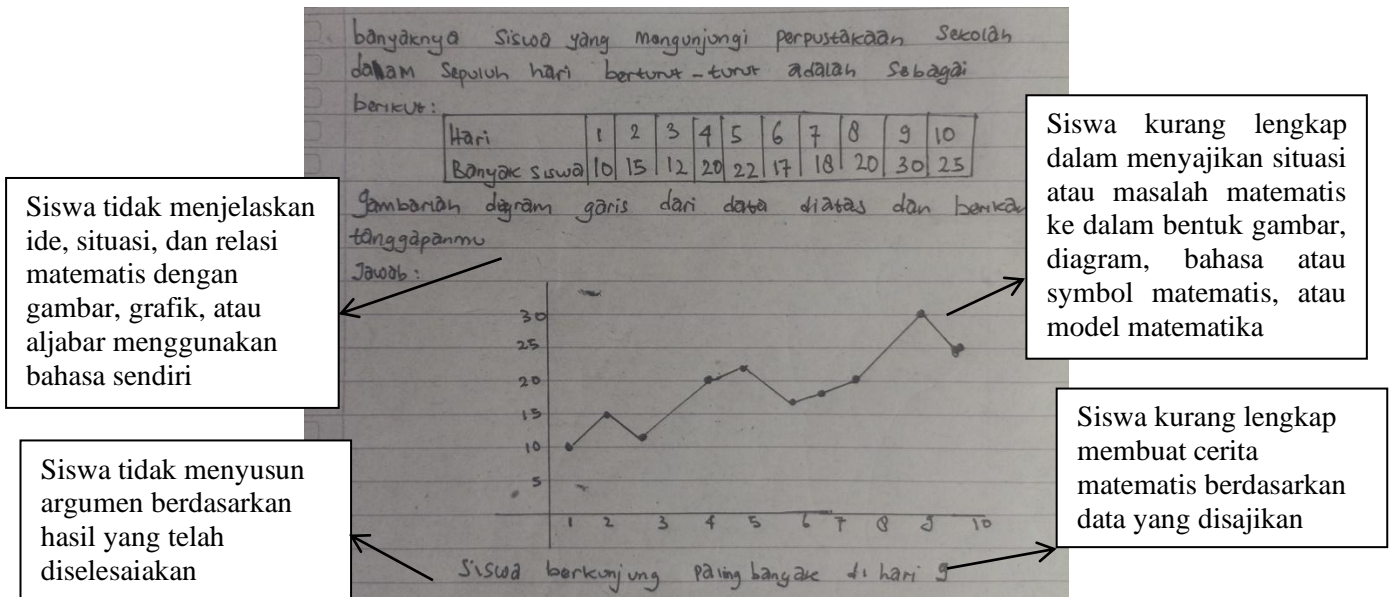 banyaknya siswa yang mengunjungi perpustakaan Sekolah
dalam Sepuluh hari berturut-turut adalah Sebagai
berikut:
Hari 1 2 3 4 5 6 7 8 9 10
Banyak siswa 10 15 12 20 22 17 18 20 30 25
gambarlah digram garis dari data diatas dan berikan
tanggapanmu
Jawab:
30
25
20
15
10
5
1 2 3 4 5 6 7 8 9 10
Siswa berkunjung paling banyak di hari 9
Siswa tidak menjelaskan
ide, situasi, dan relasi
matematis dengan
gambar, grafik, atau
aljabar menggunakan
bahasa sendiri
Siswa tidak menyusun
argumen berdasarkan
hasil yang telah
diselesaiakan
Siswa kurang lengkap
dalam menyajikan situasi
atau masalah matematis
ke dalam bentuk gambar,
diagram, bahasa atau
symbol matematis, atau
model matematika
Siswa kurang lengkap
membuat cerita
matematis berdasarkan
data yang disajikan